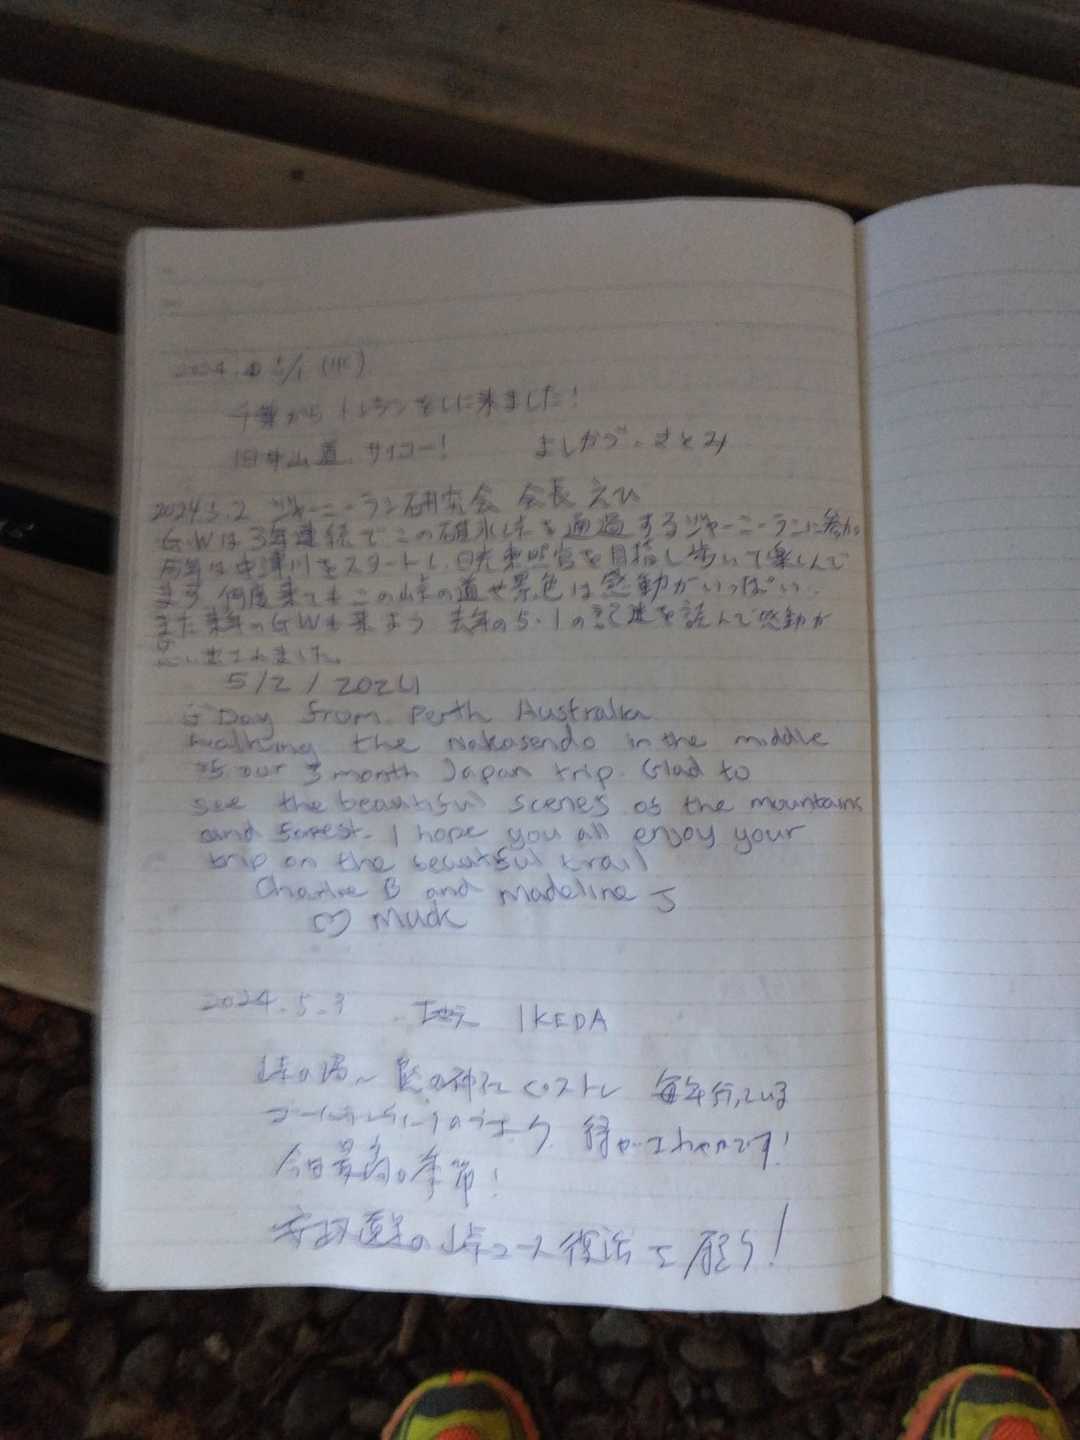 2024. 5/1 (水)
千葉から トレランをしに来ました!
旧中山道、サイコー! よしかづ、さとみ
2024.5.2 ジャーニーラン研究会 会長 えび
GWは3年連続でこの碓氷峠を通過するジャーニーランに参加。
今年は中津川をスタートし、日光東照宮を目指し歩いて楽しんで
ます。何度来てもこの峠の道や景色は感動がいっぱい。
また来年のGWも来よう 去年の5.1の記述を読んで感動が
思い出されました。
5/2/2024
G'Day from Perth Australia
walking the Nakasendo in the middle
of our 3 month Japan trip. Glad to
see the beautiful scenes of the mountains
and forest. I hope you all enjoy your
trip on the beautiful trail
Charlie B and Madeline J
♡ Muck
2024.5.3 地元 IKEDA
峠の湯～熊の神社 毎年行っている
ゴールデンウィークの 緑がさわやかです!
今日最高の季節!
安政遠足の峠コース復活を願う!